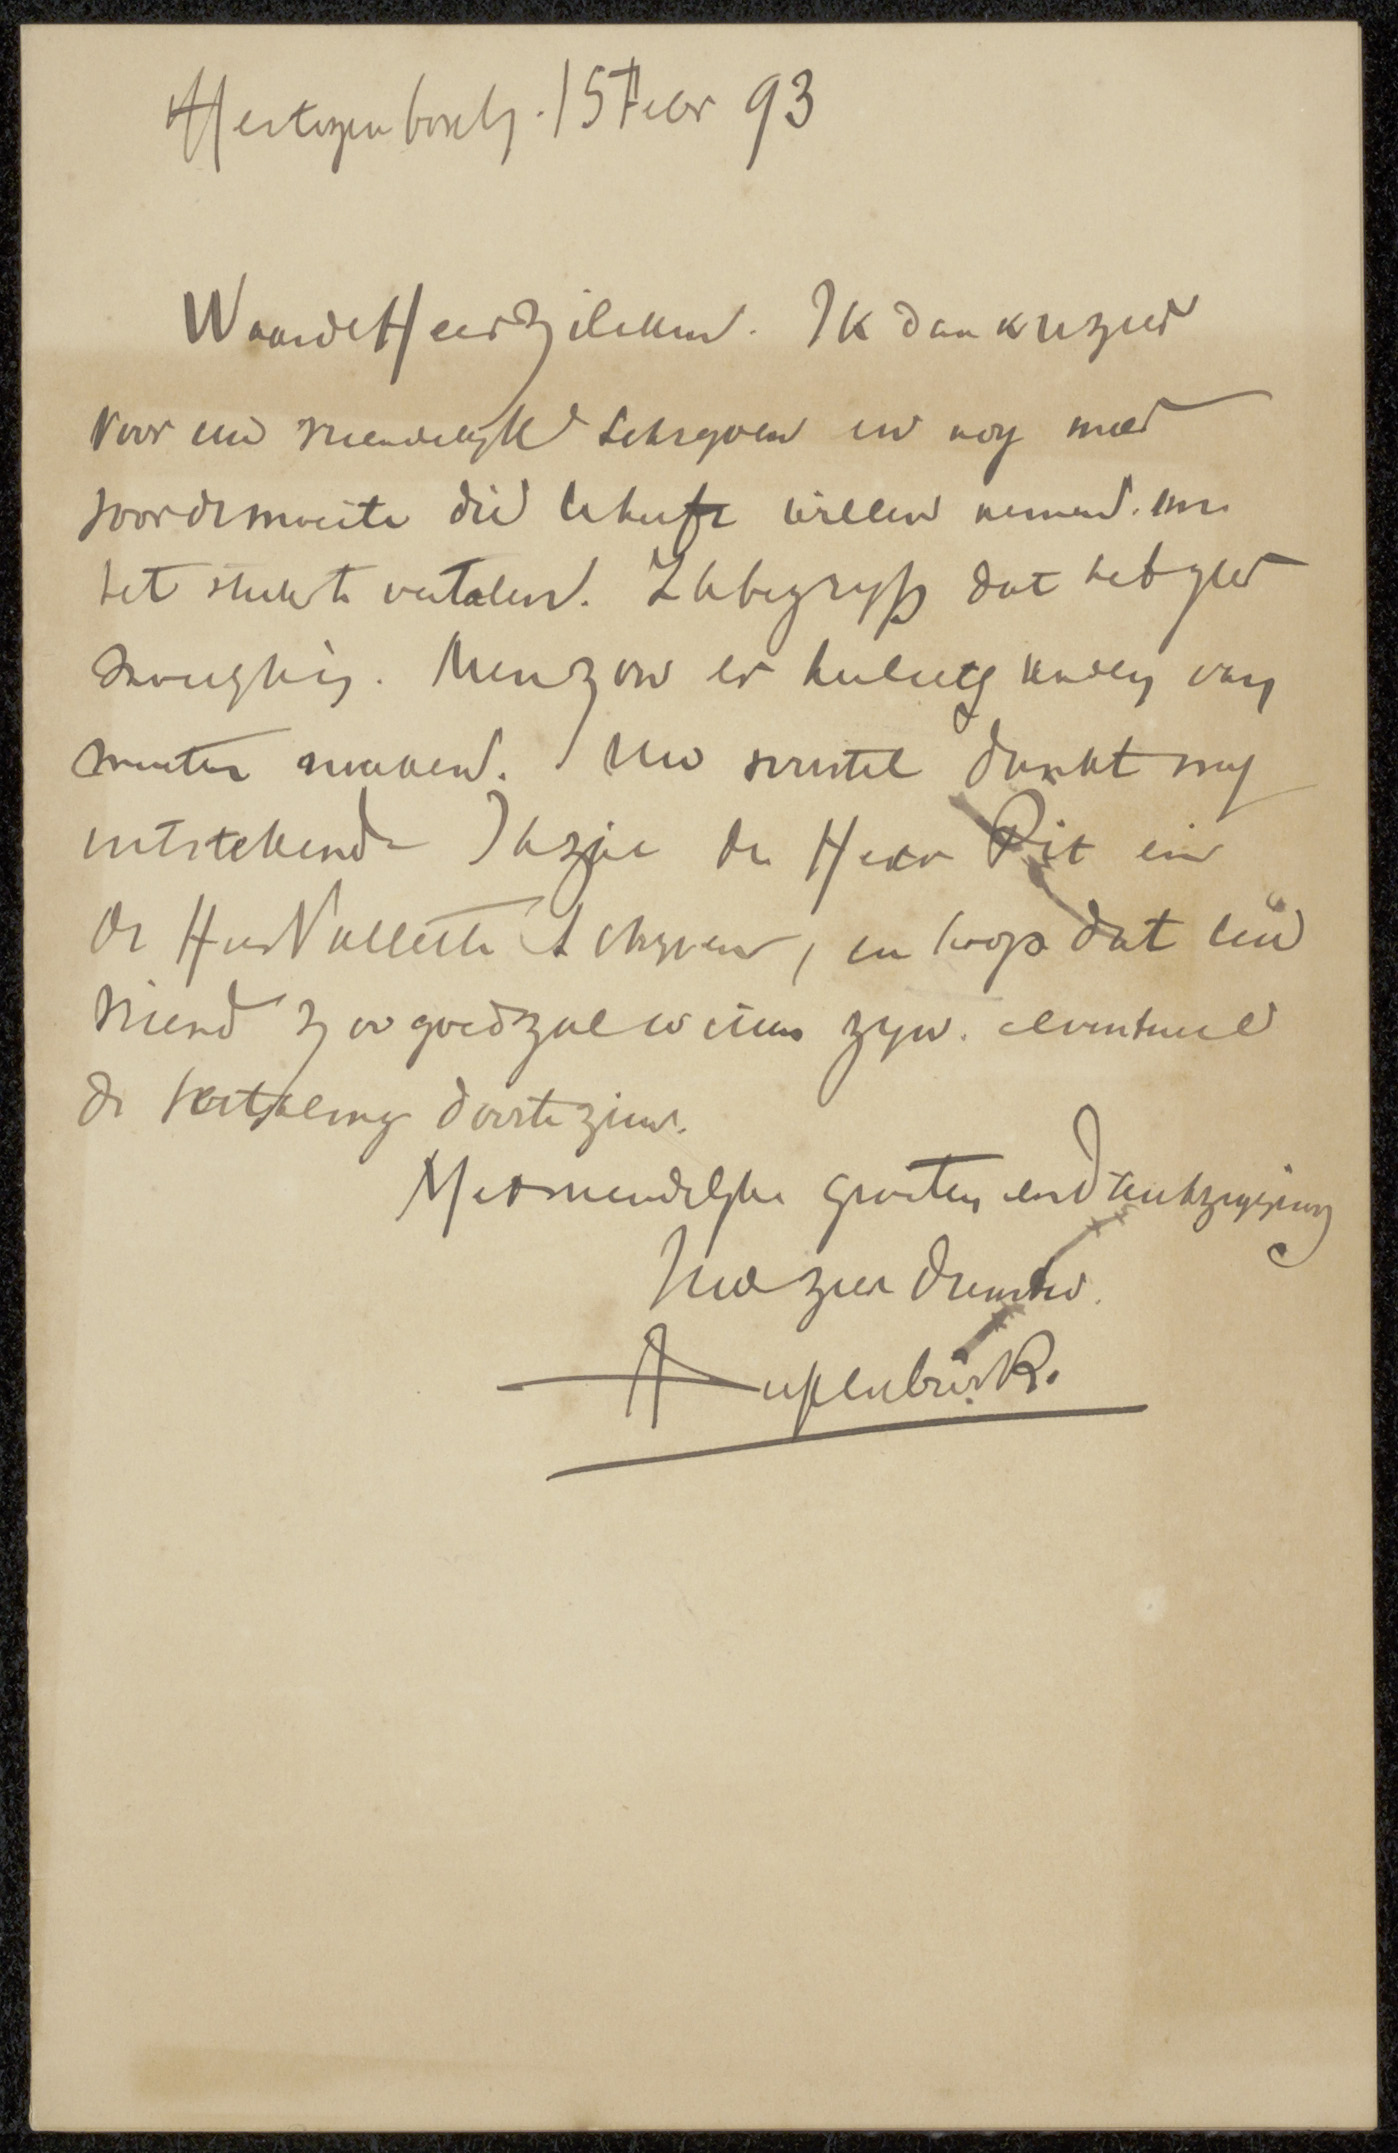 Hertogenbosch. 15 Febr 93
Waarde Heer Zilcken. Ik dank u zeer
voor uw vriendelijk schrijven en nog meer
voor de moeite die willen nemen om
het stuk te vertalen. Ik begrijp dat het zeer
moeylijk is. Men zou er heel
moeten maken. Uw voorstel dunkt my
uitstekend Ik zie de Heer Pit en
de Heer Vallette schryven, en hoop dat uw
vriend zoo goed zal willen zyn. eventueel
de vertaling door te zien.
Met vriendelyke groeten en Dankzegging
Uw zeer dienstw.
A. Diepenbrock.